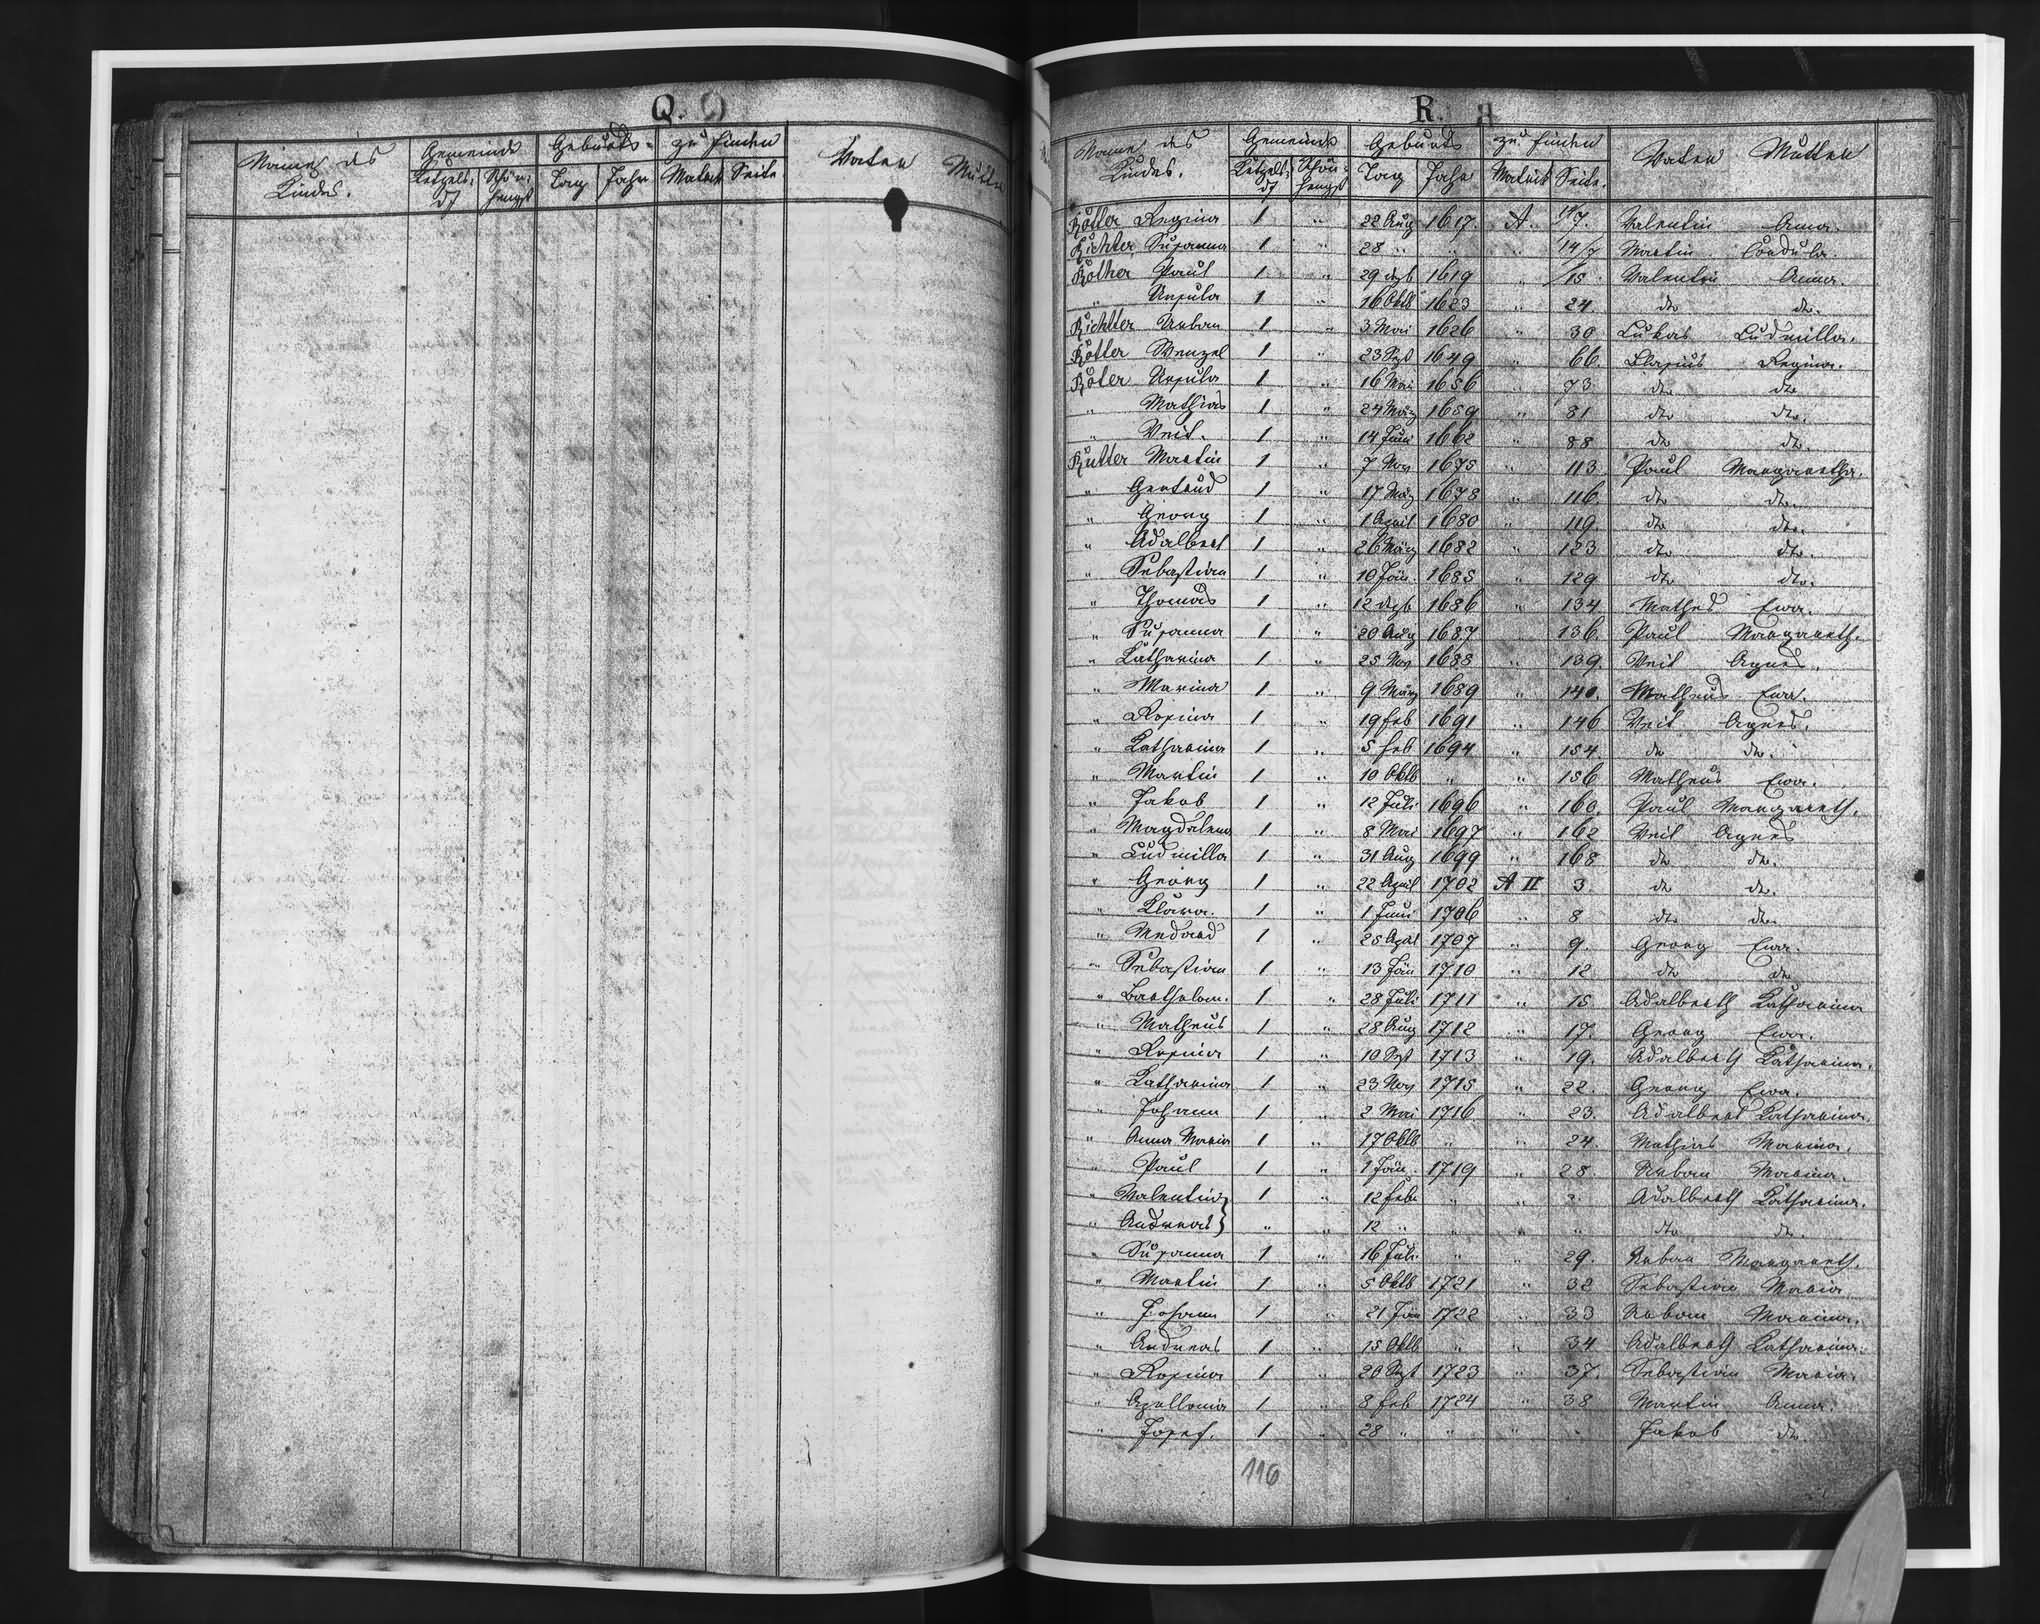 Q.
Name des Kindes. Gemeinde Geburts- zu finden Vater Mutter
Ketzelsdf Schönhengst Tag Jahr Matrik Seite.
R.
Name des Kindes. Gemeinde Geburts zu finden Vater Mutter
Ketzelsdf Schönhengst Tag Jahr Matrik Seite.
Rötter Regina 1 " 22 Aug 1617. A. 7. Valentin Anna.
Richter Susanna 1 " 28 " " " 14/7 Martin Cordula.
Röther Paul 1 " 29 dezb 1619 " 15. Valentin Anna.
" Ursula 1 " 16 Oktb 1623 " 24. dto dto.
Richtter Urban 1 " 3 Mai 1626 " 30 Lukas Ludmilla.
Rötter Wenzel 1 " 23 Sept 1649 " 66. Blasius Regina.
Röter Ursula 1 " 16 Mai 1656 " 73 dto dto
" Mathias 1 " 24 März 1659 " 81 dto dto.
" Veit. 1 " 14 Juni 1662 " 88 dto dto.
Rutter Martin 1 " 7 Nov 1675 " 113 Paul Margaretha.
" Gertrud 1 " 17 März 1678 " 116 dto dto.
" Georg 1 " 1 April 1680 " 119. dto dto.
" Adalbert 1 " 26 März 1682 " 123 dto dto.
" Sebastian 1 " 10 Jän. 1685 " 129 dto dto.
" Thomas 1 " 12 dezb 1686 " 134 Mathes Ewa.
" Susanna 1 " 20 Aug 1687 " 136. Paul Margareth.
" Katharina 1 " 25 Nov 1688 " 139. Veit Agnes.
" Marina 1 " 9 März 1689 " 140. Matheus Ewa.
" Rosina 1 " 19 feb 1691 " 146 Veit Agnes.
" Katharina 1 " 5 feb 1694 " 154. dto dto.
" Martin 1 " 10 Oktb " " 156 Matheus Ewa.
" Jakob 1 " 12 Juli 1696 " 160. Paul Margareth.
" Magdalena 1 " 8 Mai 1697 " 162 Veit Agnes
" Ludmilla 1 " 31 Aug 1699 " 168 dto dto.
" Georg 1 " 22 April 1702 A II 3 dto dto.
" Klara. 1 " 1 Juni 1706 " 8 dto dto.
" Medard 1 " 25 April 1707 " 9. Georg Ewa.
" Sebastian 1 " 13 Jän 1710 " 12 dto dto
" Bartholom. 1 " 28 Juli 1711 " 15 Adalberth Katharina
" Matheus 1 " 28 Aug 1712 " 17. Georg Ewa.
" Rosina 1 " 10 Sept 1713 " 19. Adalberth Katharina.
" Katharina 1 " 23 Nov 1715 " 22. Georg Ewa.
" Johann 1 " 2 Mai 1716 " 23. Adalbert Katharina.
" Anna Maria 1 " 17 Oktb " " 24 Mathias Marina.
" Paul 1 " 1 Jän. 1719 " 28 Urban Marina.
" Valentin } 1 " 12 feb. " " " Adalberth Katharina.
" Andreas } " " 12 " " " " dto dto.
" Susanna 1 " 16 Juli. " " 29. Urban Margareth.
" Martin 1 " 5 Oktb 1721 " 32 Sebastian Maria.
" Johann 1 " 21 Jän 1722 " 33 Urban Marina.
" Andreas 1 " 15 Oktb " " 34 Adalberth Katharina.
" Rosina 1 " 20 Sept 1723 " 37. Sebastian Maria.
" Apollonia 1 " 8 feb 1724 " 38 Martin Anna.
" Josef. 1 " 28 " " " " Jakob dto
116